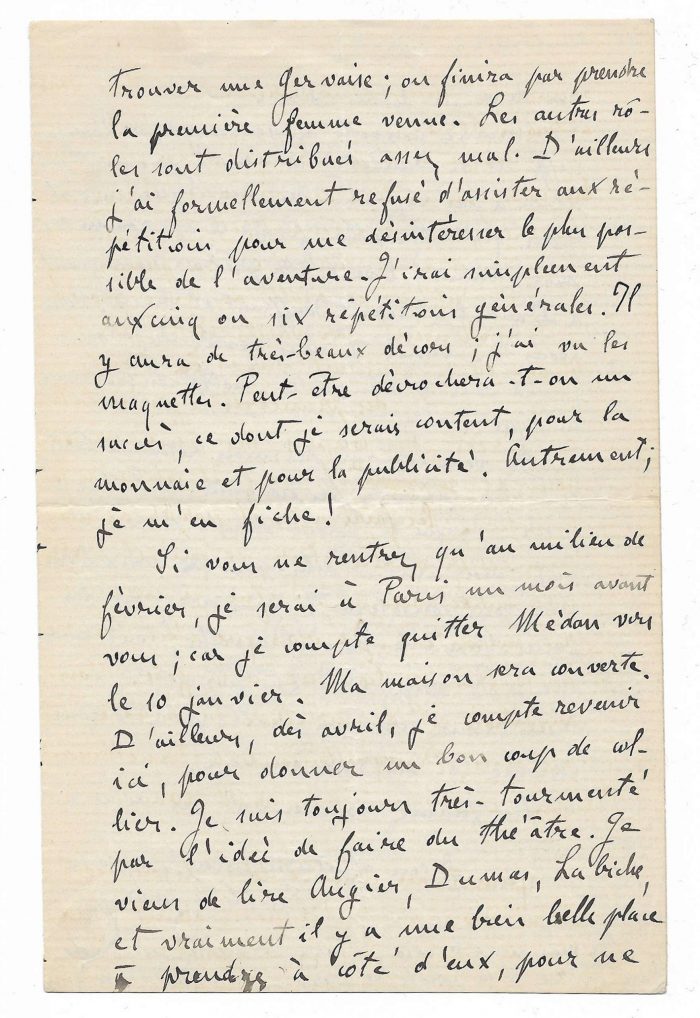 trouver une Gervaise ; on finira par prendre
la première femme venue. Les autres rô-
les sont distribués assez mal. D'ailleurs
j'ai formellement refusé d'assister aux ré-
pétitions pour me désintéresser le plus pos-
sible de l'aventure. J'irai simplement
aux cinq ou six répétitions générales. Il
y aura de très-beaux décors ; j'ai vu les
maquettes. Peut-être décrochera-t-on un
succès, ce dont je serais content, pour la
monnaie et pour la publicité. Autrement,
je m'en fiche !
Si vous ne rentrez qu'au milieu de
février, je serai à Paris un mois avant
vous ; car je compte quitter Médan vers
le 10 janvier. Ma maison sera couverte.
D'ailleurs, dès avril, je compte revenir
ici, pour donner un bon coup de col-
lier. Je suis toujours très-tourmenté
par l'idée de faire du théâtre. Je
viens de lire Augier, Dumas, Labiche,
et vraiment il y a une bien belle place
à prendre à côté d'eux, pour ne